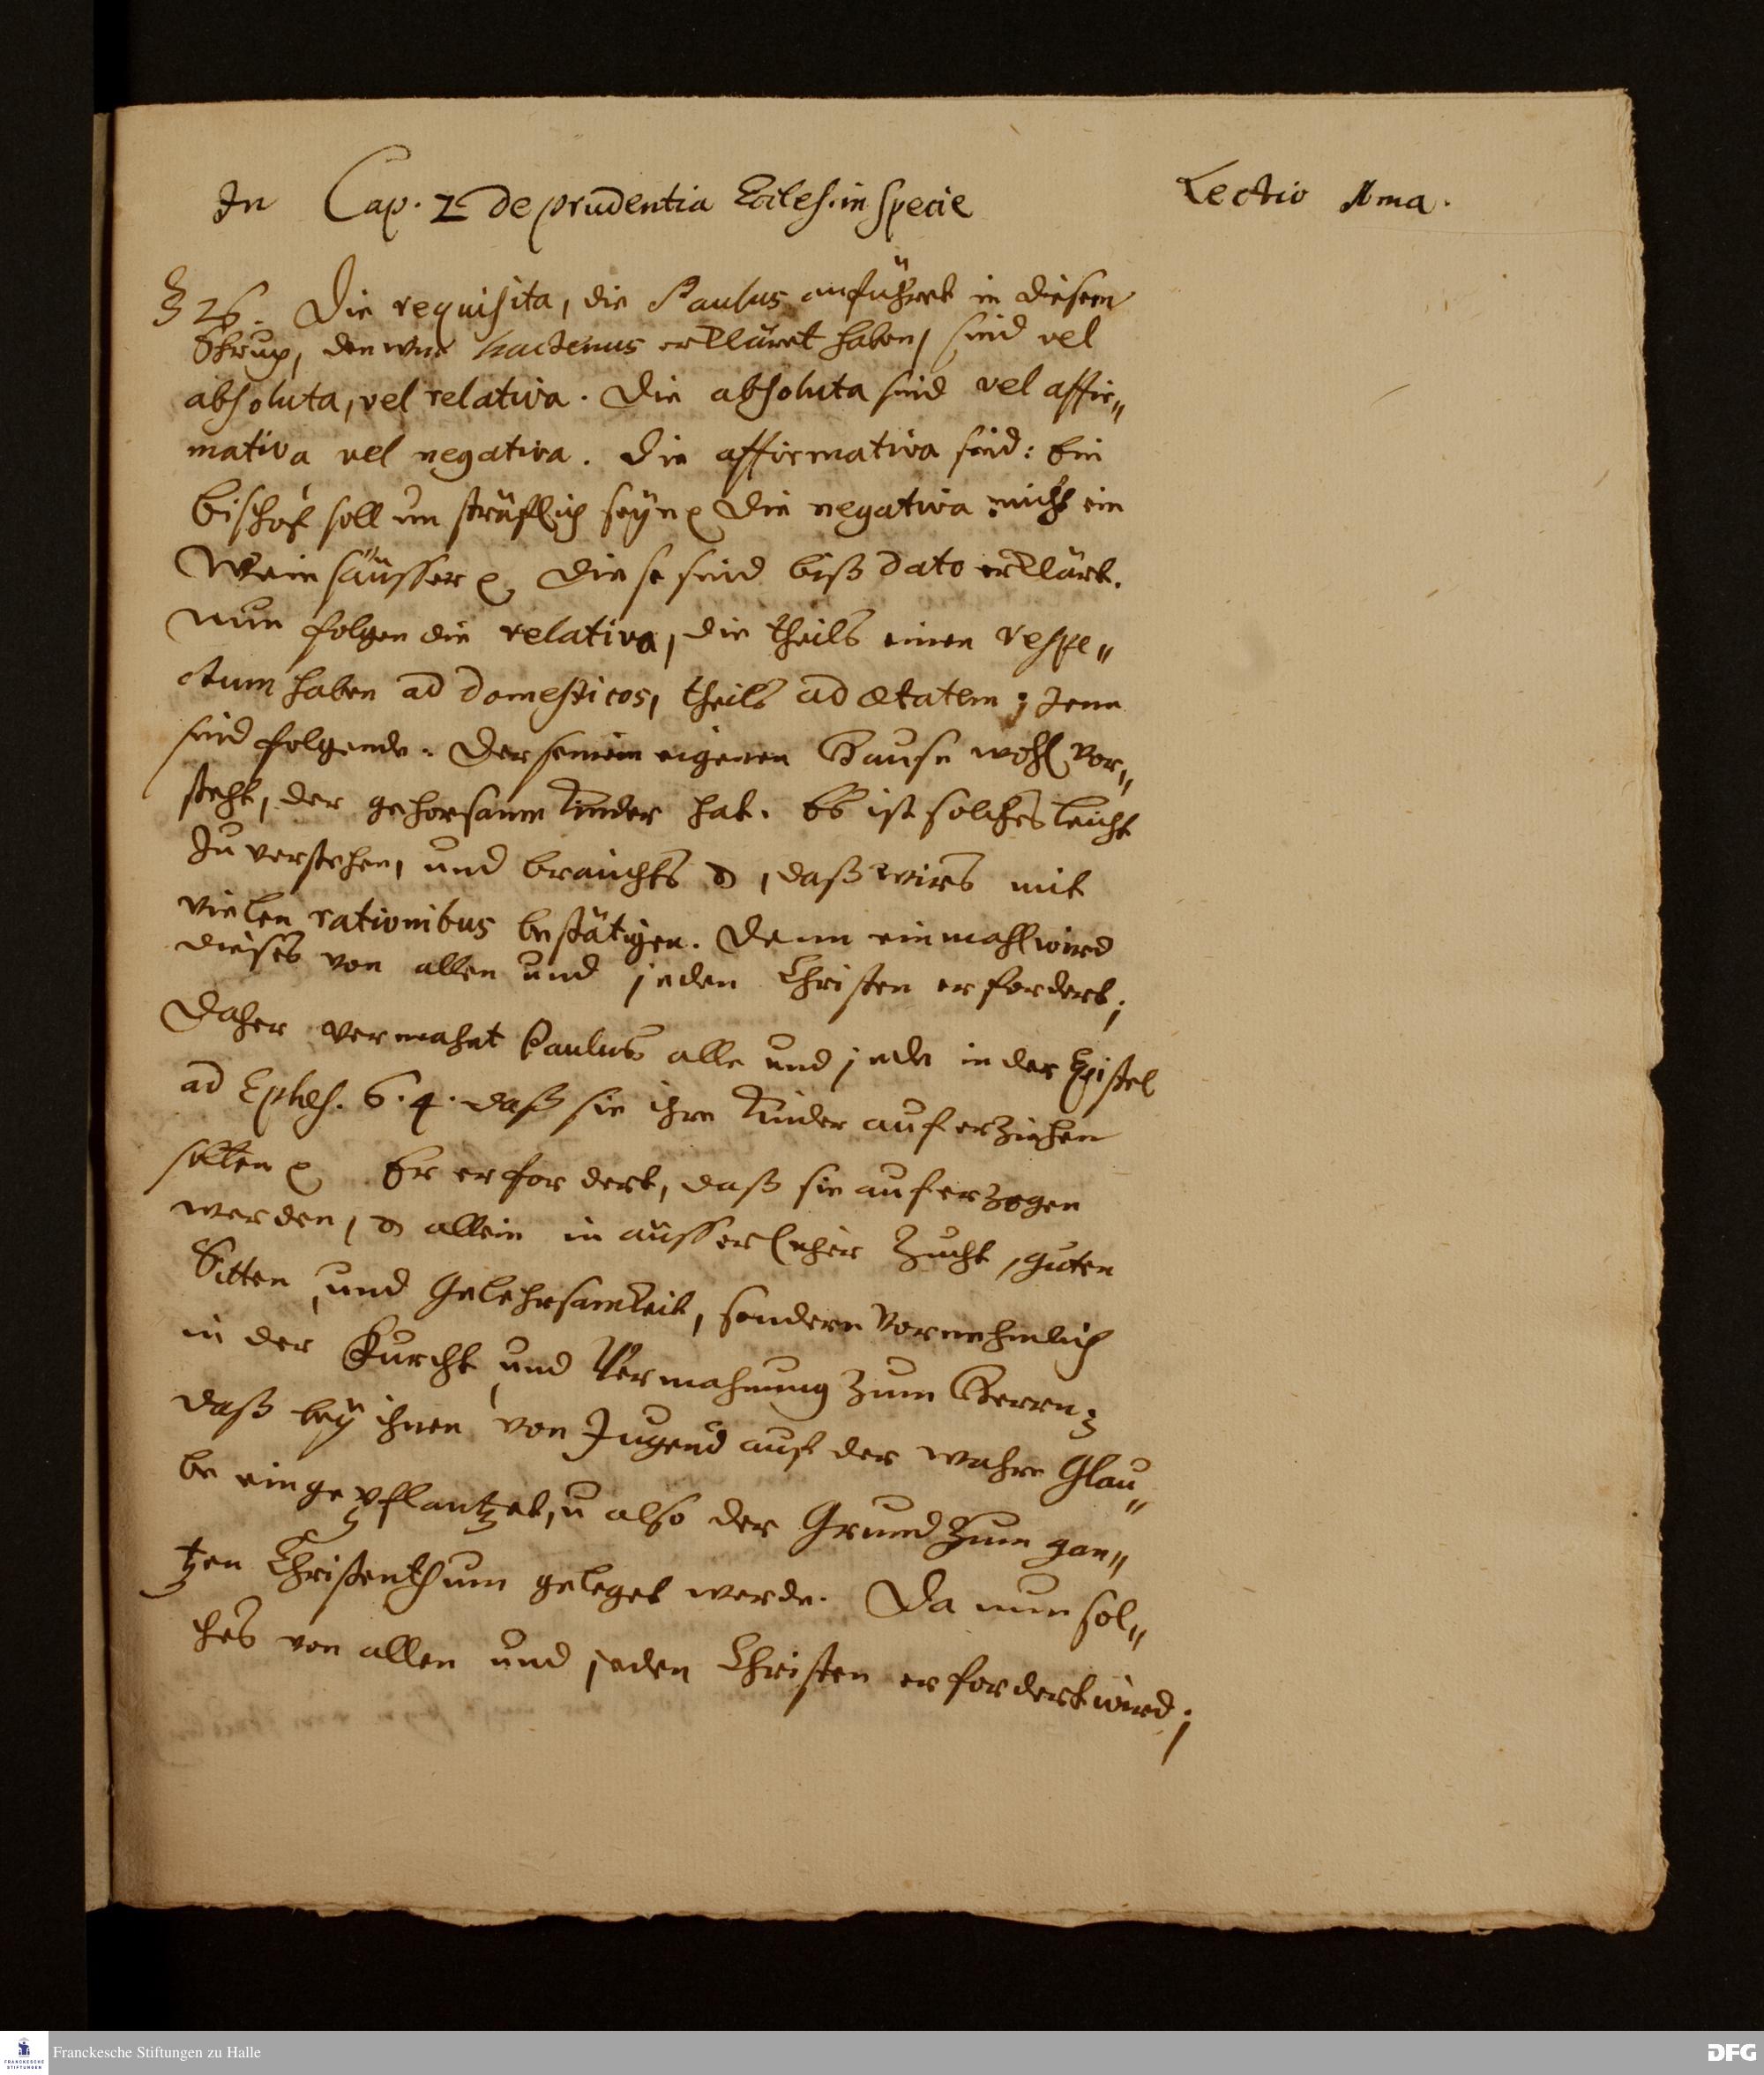 In Cap. 2 de prudentia Eccles. in specie
Lectio 1ma.
§ 26. Die requisita, die Paulus anführet in diesem
Spruch, den wir hactenus erkläret haben, sind vel
absoluta, vel relativa. Die absoluta sind vel affir„
mativa vel negativa. Die affirmativa sind: Ein
Bischof soll unsträflich seyn Die negativa nicht ein
Weinsäuffer Diese sind biß dato erklärt.
Nun folgen die relativa, die theils einen respe„
ctum haben ad domesticos, theils ad ætatem; Jene
sind folgende. Der seinem eigenen Hause wohl vor„
steht, der gehorsame Kinder hat. Es ist solches leicht
zu verstehen, und brauchts , daß wirs mit
vielen rationibus bestätigen. Denn einmahl wird
dieses von allen und jeden Christen erfordert;
Daher vermahnt Paulus alle und jede in der Epistel
ad Ephes. 6. 4. daß sie ihre Kinder auferziehen
sollen Er erfordert, daß sie auferzogen
werden, allein in äusserlicher Zucht, guten
Sitten, und Gelehrsamkeit, sondern vornehmlich
in der Furcht und Vermahnung zum Herrn;
daß bey ihnen von Jugend auf der wahre Glau„
be eingepflantzet, u also der Grund zum gan„
tzen Christenthum geleget werde. Da nun sol„
ches von allen und jeden Christen erfordert wird;
Franckesche Stiftungen zu Halle
FRANCKESCHE STIFTUNGEN
DFG